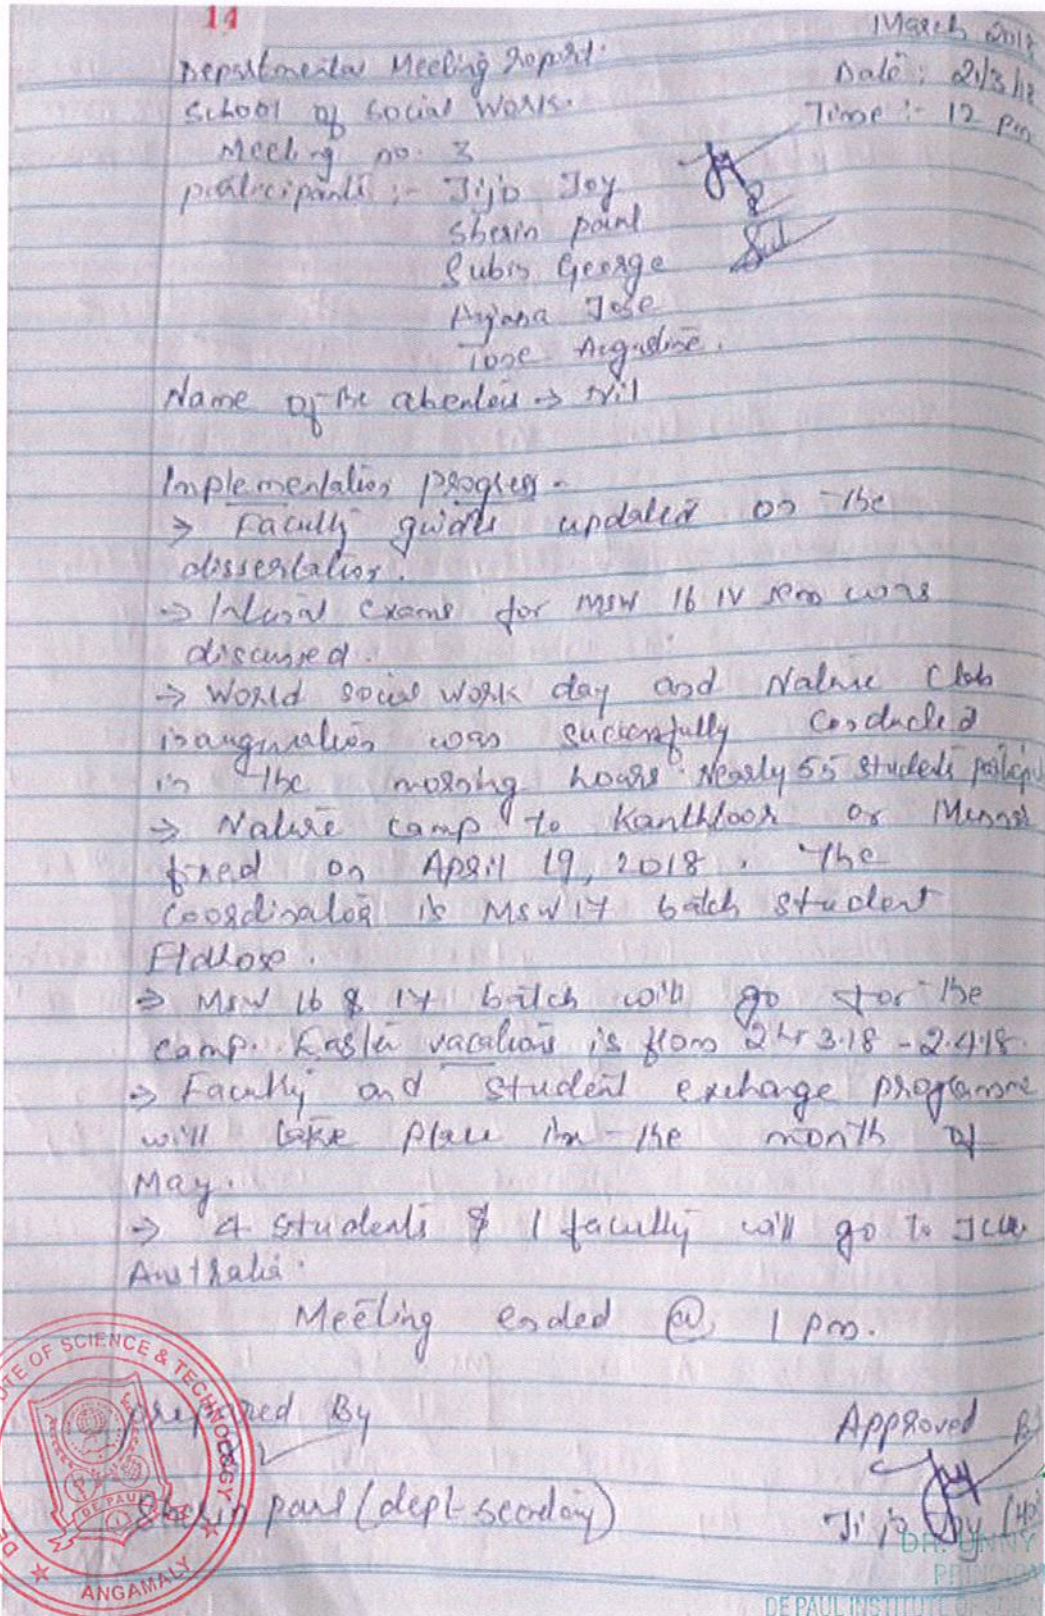 14
March 2018
Departmental Meeting Report.
Date : 21/3/18
School of Social Work.
Time :- 12 pm
Meeting no. 3
participants :- Jijo Joy
Sherin paul
Subin George
Anjana Jose
Tose Augustine.
Name of the abentees → Nil
Implementation progress -
→ Faculty guides updated on the
dissertation.
→ Internal exams for MSW 16 IV sem was
discussed.
→ World social work day and Nature Club
inauguration was successfully conducted
in the morning hours. Nearly 55 students particip
→ Nature camp to Kanthloor or Munnar
fixed on April 19, 2018. The
coordinator is MSW 17 batch student
Eldhose.
→ MSW 16 & 17 batch will go for the
camp. Easter vacations is from 24.3.18 - 2.4.18.
→ Faculty and student exchange programme
will take place in the month of
May.
→ 4 students & 1 faculty will go to JCU
Australia.
Meeting ended @ 1 pm.
prepared By
Approved B
Sherin paul (dept-secretary)
Jijo Joy (HO
UTE OF SCIENCE & TECHNOLOGY
DE PAUL
ANGAMALY
DR. UNNY
PRINCIPAL
DE PAUL INSTITUTE OF